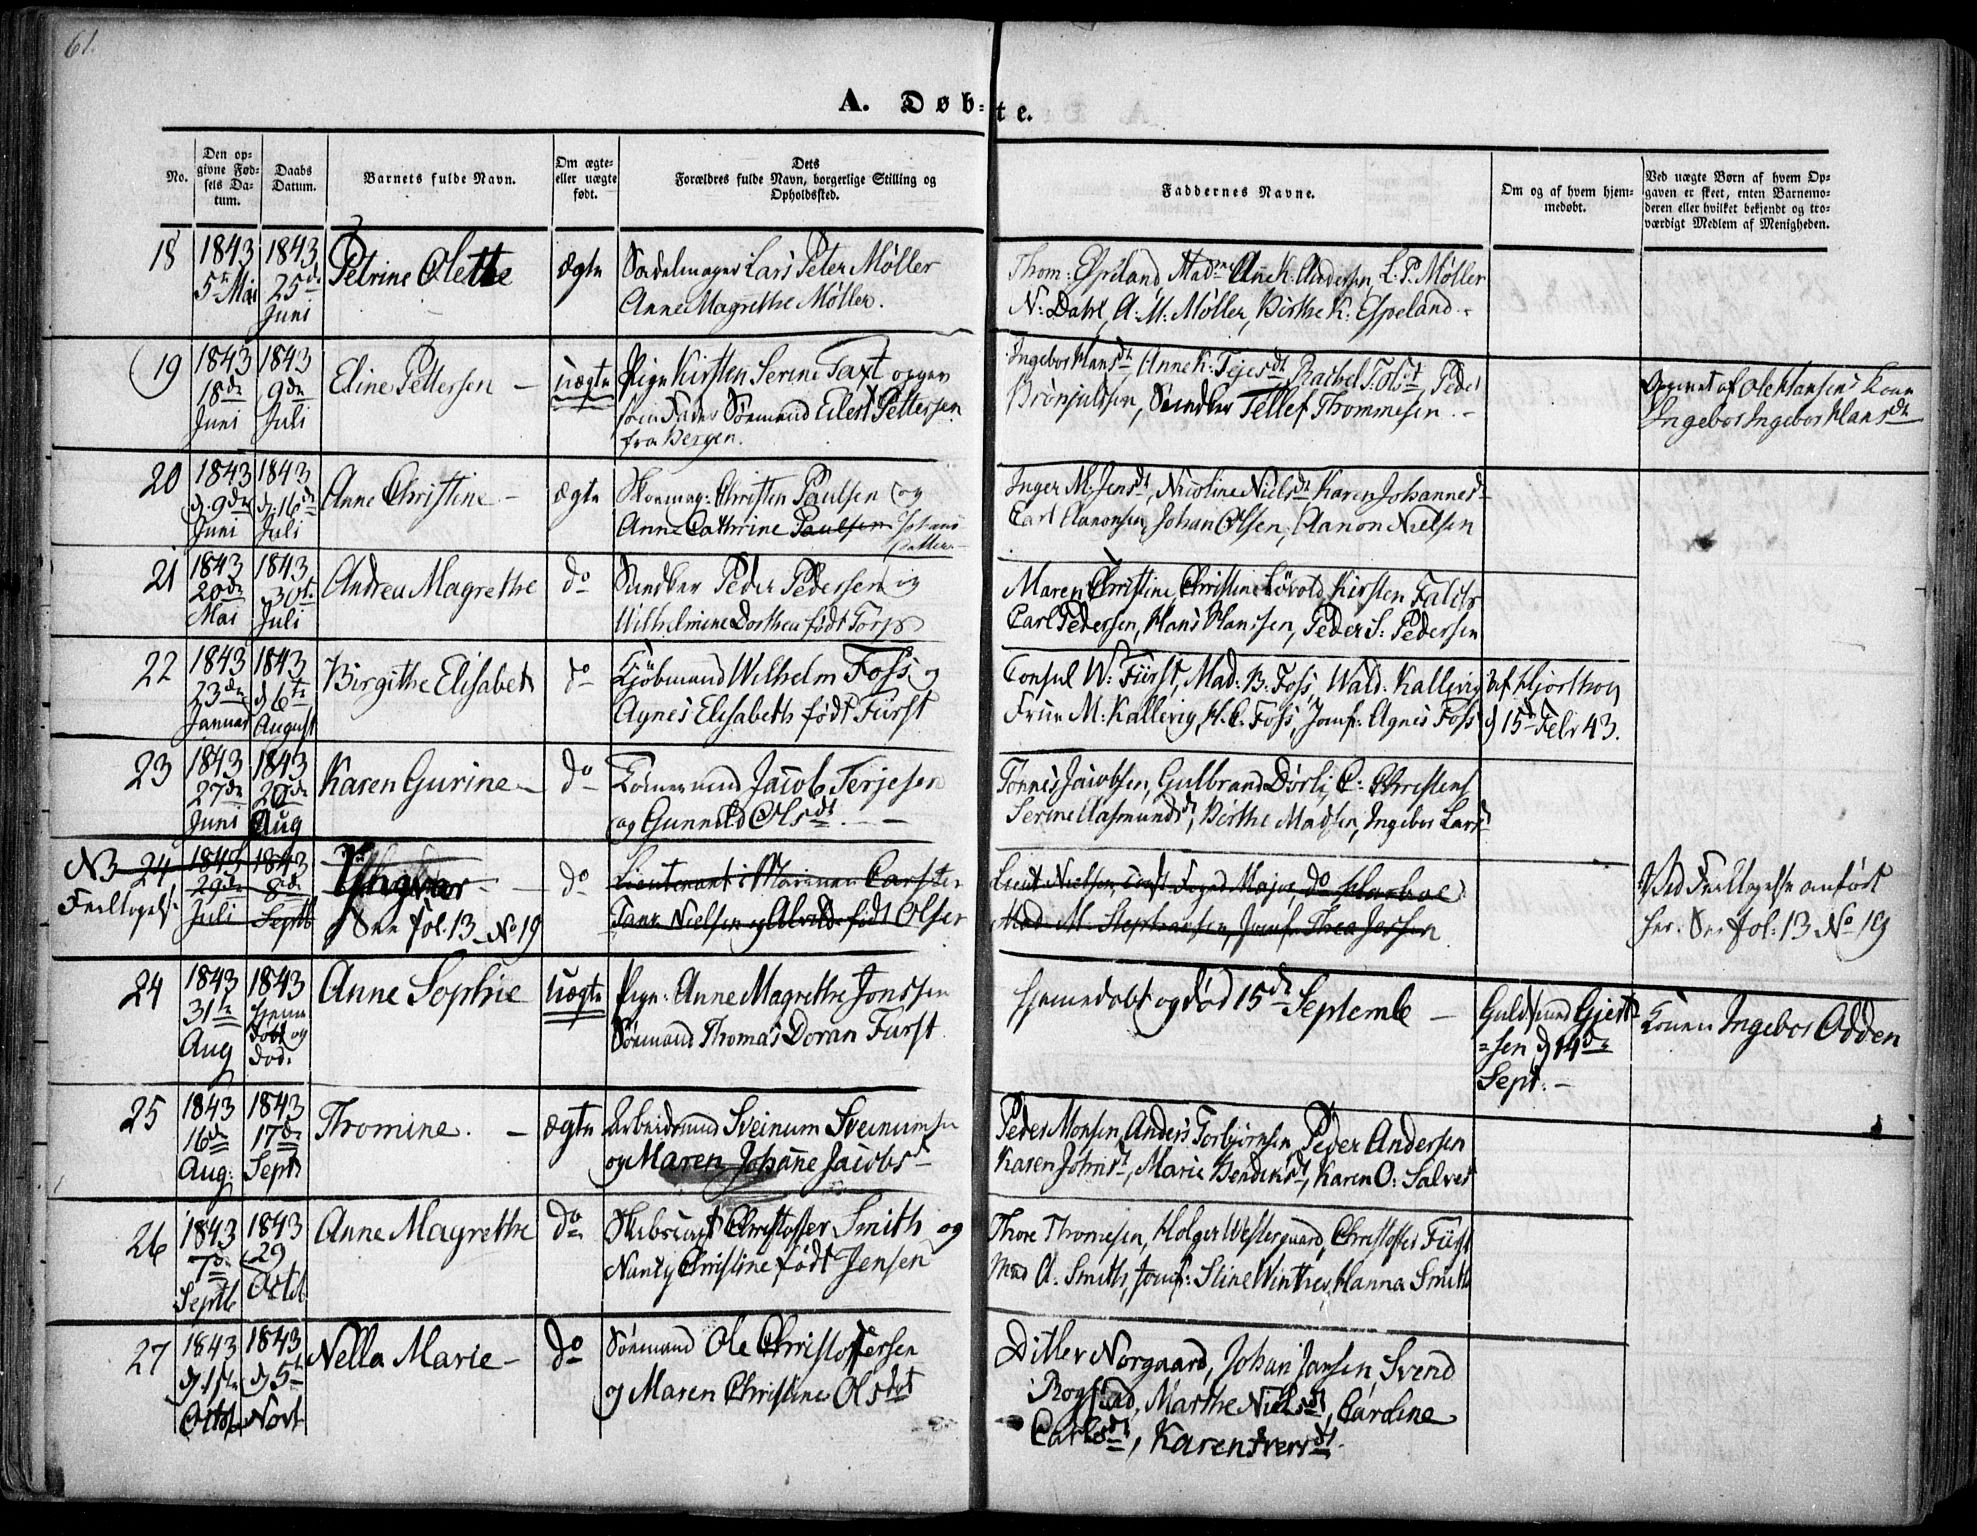 61.
A. Døbte.
No.
Den opgivne Fødsels Datum.
Daabs Datum.
Barnets fulde Navn.
Om ægte- eller uægte født.
Dets Forældres fulde Navn, borgerlige Stilling og Opholdssted.
Faddernes Navne.
Om og af hvem hjemmedøbt.
Ved uægte Børn af hvem Opgaven er skeet, enten Barnemoderen eller hvilket bekjendt og troværdigt Medlem af Menigheden.
18 1843 5te Mai 1843 25de Juni Petrine Olette ægte Sadelmager Lars Peter Møller
Anne Magrethe Møller.
L. P. Møller
N: Dahl, A: M: Møller, Birthe K: Espeland.
19 1843 18de Juni 1843 9de Juli Eline Pettersen uægte Pige Kirsten Serine Taxt
Sømand Eilert Pettersen
fra Bergen.
Ingebor Hansdt, Anne K: Tejesdt, Rachel Tolsdt, Peder
Tellef Thommesen.
Opgivet af Ole Hansens Kone
Ingebor Ingebor Hansdt
20 1843 d. 9de Juni 1843 d. 16de Juli Anne Christine ægte Skomag: Christen Paulsen og
Anne Cathrine Paulsen
Inger M: Jensdt, Nicoline Nielsdt Karen Johannesd
Carl Aanonsen, Johan Olsen, Aanon Nielsen
21 1843 20de Mai 1843 30te Juli Andrea Magrethe do Peder Pedersen og
Wilhelmine Dorthea født Torp
Maren Christine, Christine Løvold, Kirsten Falch
Carl Pedersen, Hans Hanssen, Peder S: Pedersen
22 1843 23de Januar 1843 d 6te August Birgithe Elisabeth do Kjøbmand Wilhelm Foss og
Agnes Elisabeth født Fürst
Consul W: Fürst, Mad. B. Foss, Wald: Kallevig
Frue M: Kallevig, H. C. Foss, Jomf: Agnes Foss
af Hjorthoy
d 15d Febr 43.
23 1843 27de Juni 1843 20de Aug Karen Gurine do Tømermand Jacob Terjesen
og Gunnild Olsdt
Tønnes Jacobsen, Gulbrand Dørli, C: Christens
Serine Aasmundsdt, Birthe Madsen, Ingebor Larsd
No 24 Feiltagelse 1843 29de Juli 1843 8de Septb Yngvar do Lieutenant i Marinen Carsten
Tank Nielsen og Alvilde født Olsen
See fol. 13 No 19
Mad. M. Stephansen, Jomf: Thea Jessen
Ved Feiltagelse anført
her. See fol: 13 No 19
24 1843 31te Aug 1843 hjemedøbt og død. Anne Sophie uægte Pige: Anne Magrethe Jonssen
Sømand Thomas Doran Furst
Hjemedøbt og død 15de Septemb
Guldsmed Gjertsen d 14de Sept.
Konen Ingebor Odden
25 1843 16de Aug: 1843 17de Septb Thomine. ægte Arbeidsmand Sveinum Sveinumsen
og Maren Johanne Jacobsd
Peder Monsen, Anders Torbjørnsen, Peder Andersen
Karen Johnsdt, Marie Hendriksdt, Karen O: Salves
26 1843 7de Septb 1843 29 Octb Anne Magrethe do Skibscapt Christoffer Smith og
Nancy Christine født Jensen
Thore Thomesen, Holger Westergaard, Christoffer Fürst
Mad A: Smith, Jomf: Stine Winther, Hanna Smith
27 1843 d. 1ste Octob 1843 d 5te Novb Nella Marie do Sømand Ole Christoffersen
og Maren Christine Olsdat
Ditlev Norgaard, Johan Jansen, Svend
Rogstad, Marthe Nielsdt, Caroline
Carlsdt, Karen